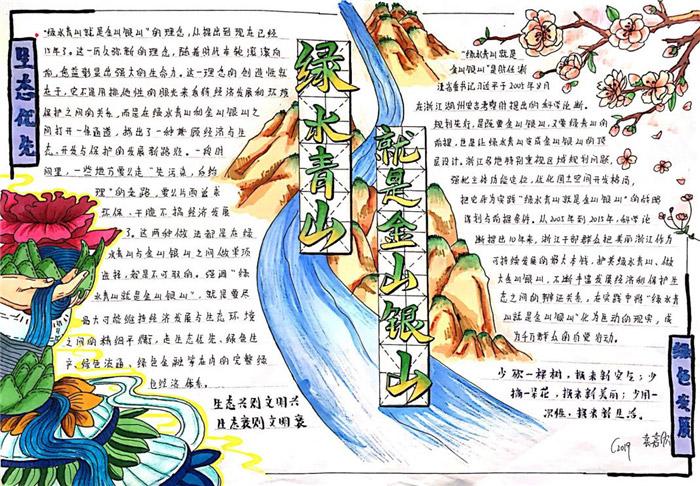 生态优先
"绿水青山就是金山银山"的理念,从提出到现在已经
15年了。这一历久弥新的理念,随着时代车轮滚滚向
前,愈益彰显出强大的生命力。这一理念的创造性就
在于,它不是用排他性的眼光来看待经济发展和环境
保护之间的关系,而是在绿水青山和金山银山之
间打开一条通道,指出了一种兼顾经济与生
态、开发与保护的发展新路径。一段时
间里,一些地方要么走"先污染,后治
理"的老路,要么片面追求
环保,干脆不搞经济发展
了。这两种做法都是在绿
水青山与金山银山之间做单项
选择,都是不可取的。强调"绿
水青山就是金山银山",就是要尽
最大可能维持经济发展与生态环境
之间的精细平衡,走生态优先、绿色生
产、绿色流通、绿色金融等在内的完整绿
色经济体系。
生态兴则文明兴
生态衰则文明衰
绿水青山
就是金山银山
"绿水青山就是
金山银山"是时任浙
江省委书记习近平于2005年8月
在浙江湖州安吉考察时提出的科学论断。
规划先行,是既要金山银山,又要绿水青山的
前提,也是让绿水青山变成金山银山的顶
层设计。浙江各地特别重视区域规划问题,
强化主体功能定位,优化国土空间开发格局,
把它作为实践"绿水青山就是金山银山"的战略
谋划与前提条件。从2005年到2015年,科学论
断提出10年来,浙江干部群众把美丽浙江作为
可持续发展的最大本钱,护美绿水青山、做
大金山银山,不断丰富发展经济和保护生
态之间的辩证关系,在实践中将"绿水青
山就是金山银山"化为生动的现实,成
为千万群众的自觉行动。
少砍一棵树,换来新空气;少
摘一朵花,换来新美丽;少用一
次性,换来新生活。
绿色发展
C2019